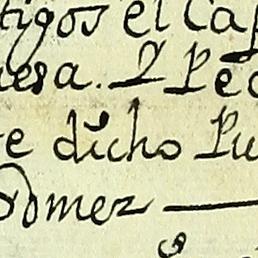 tigos el Cap
uesa. Y Ped
e dicho Pu
Gomez